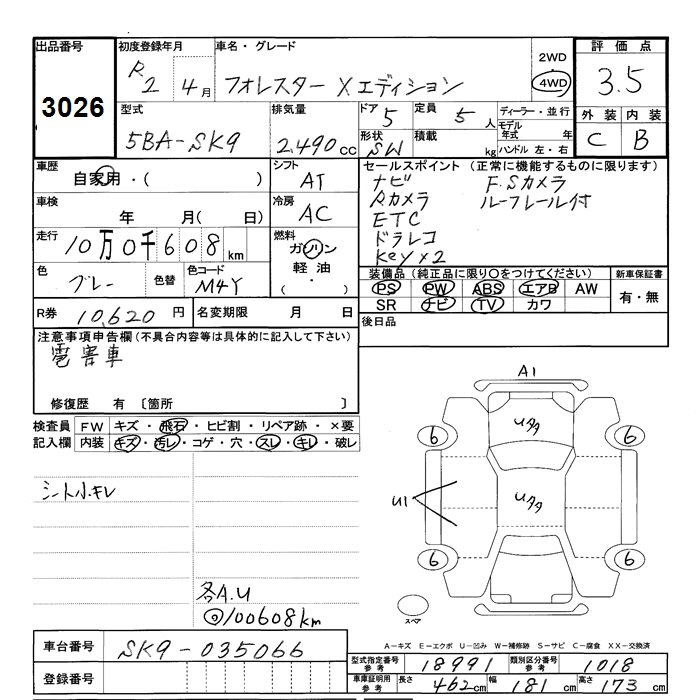 出品番号
3026
初度登録年月
R2 4月
車名・グレード
フォレスター Xエディション
2WD
4WD
評価点
3.5
外装 内装
C B
型式
5BA-SK9
排気量
2,490 cc
ドア 5
形状 SW
定員 5 人
積載 kg
ディーラー・並行
モデル年式 年
ハンドル 左・右
車歴
自家用・( )
シフト
AT
車検
年 月( 日)
冷房
AC
走行
10万0千608 km
燃料
ガソリン
軽油
( ・ )
色
グレー
色替
色コード
M4Y
R券 10,620 円
名変期限 月 日
セールスポイント (正常に機能するものに限ります)
ナビ F.Sカメラ
Rカメラ ルーフレール付
ETC
ドラレコ
Key×2
装備品 (純正品に限り○をつけてください)
PS PW ABS エアB AW
SR ナビ TV カワ
新車保証書
有・無
後日品
注意事項申告欄(不具合内容等は具体的に記入して下さい)
雹害車
修復歴 有 〔箇所 〕
検査員記入欄
FW キズ・飛石・ヒビ割・リペア跡・×要
内装 キズ・汚レ・コゲ・穴・スレ・キレ・破レ
シート小キレ
各A.U
◎100608km
A1
Uタタ
Uタタ
U1
6
6
6
6
スペア
A-キズ E-エクボ U-凹み W-補修跡 S-サビ C-腐食 XX-交換済
車台番号 SK9-035066
登録番号
型式指定番号 参考 18991
類別区分番号 参考 1018
車庫証明用 参考 長さ 462cm 幅 181cm 高さ 173cm